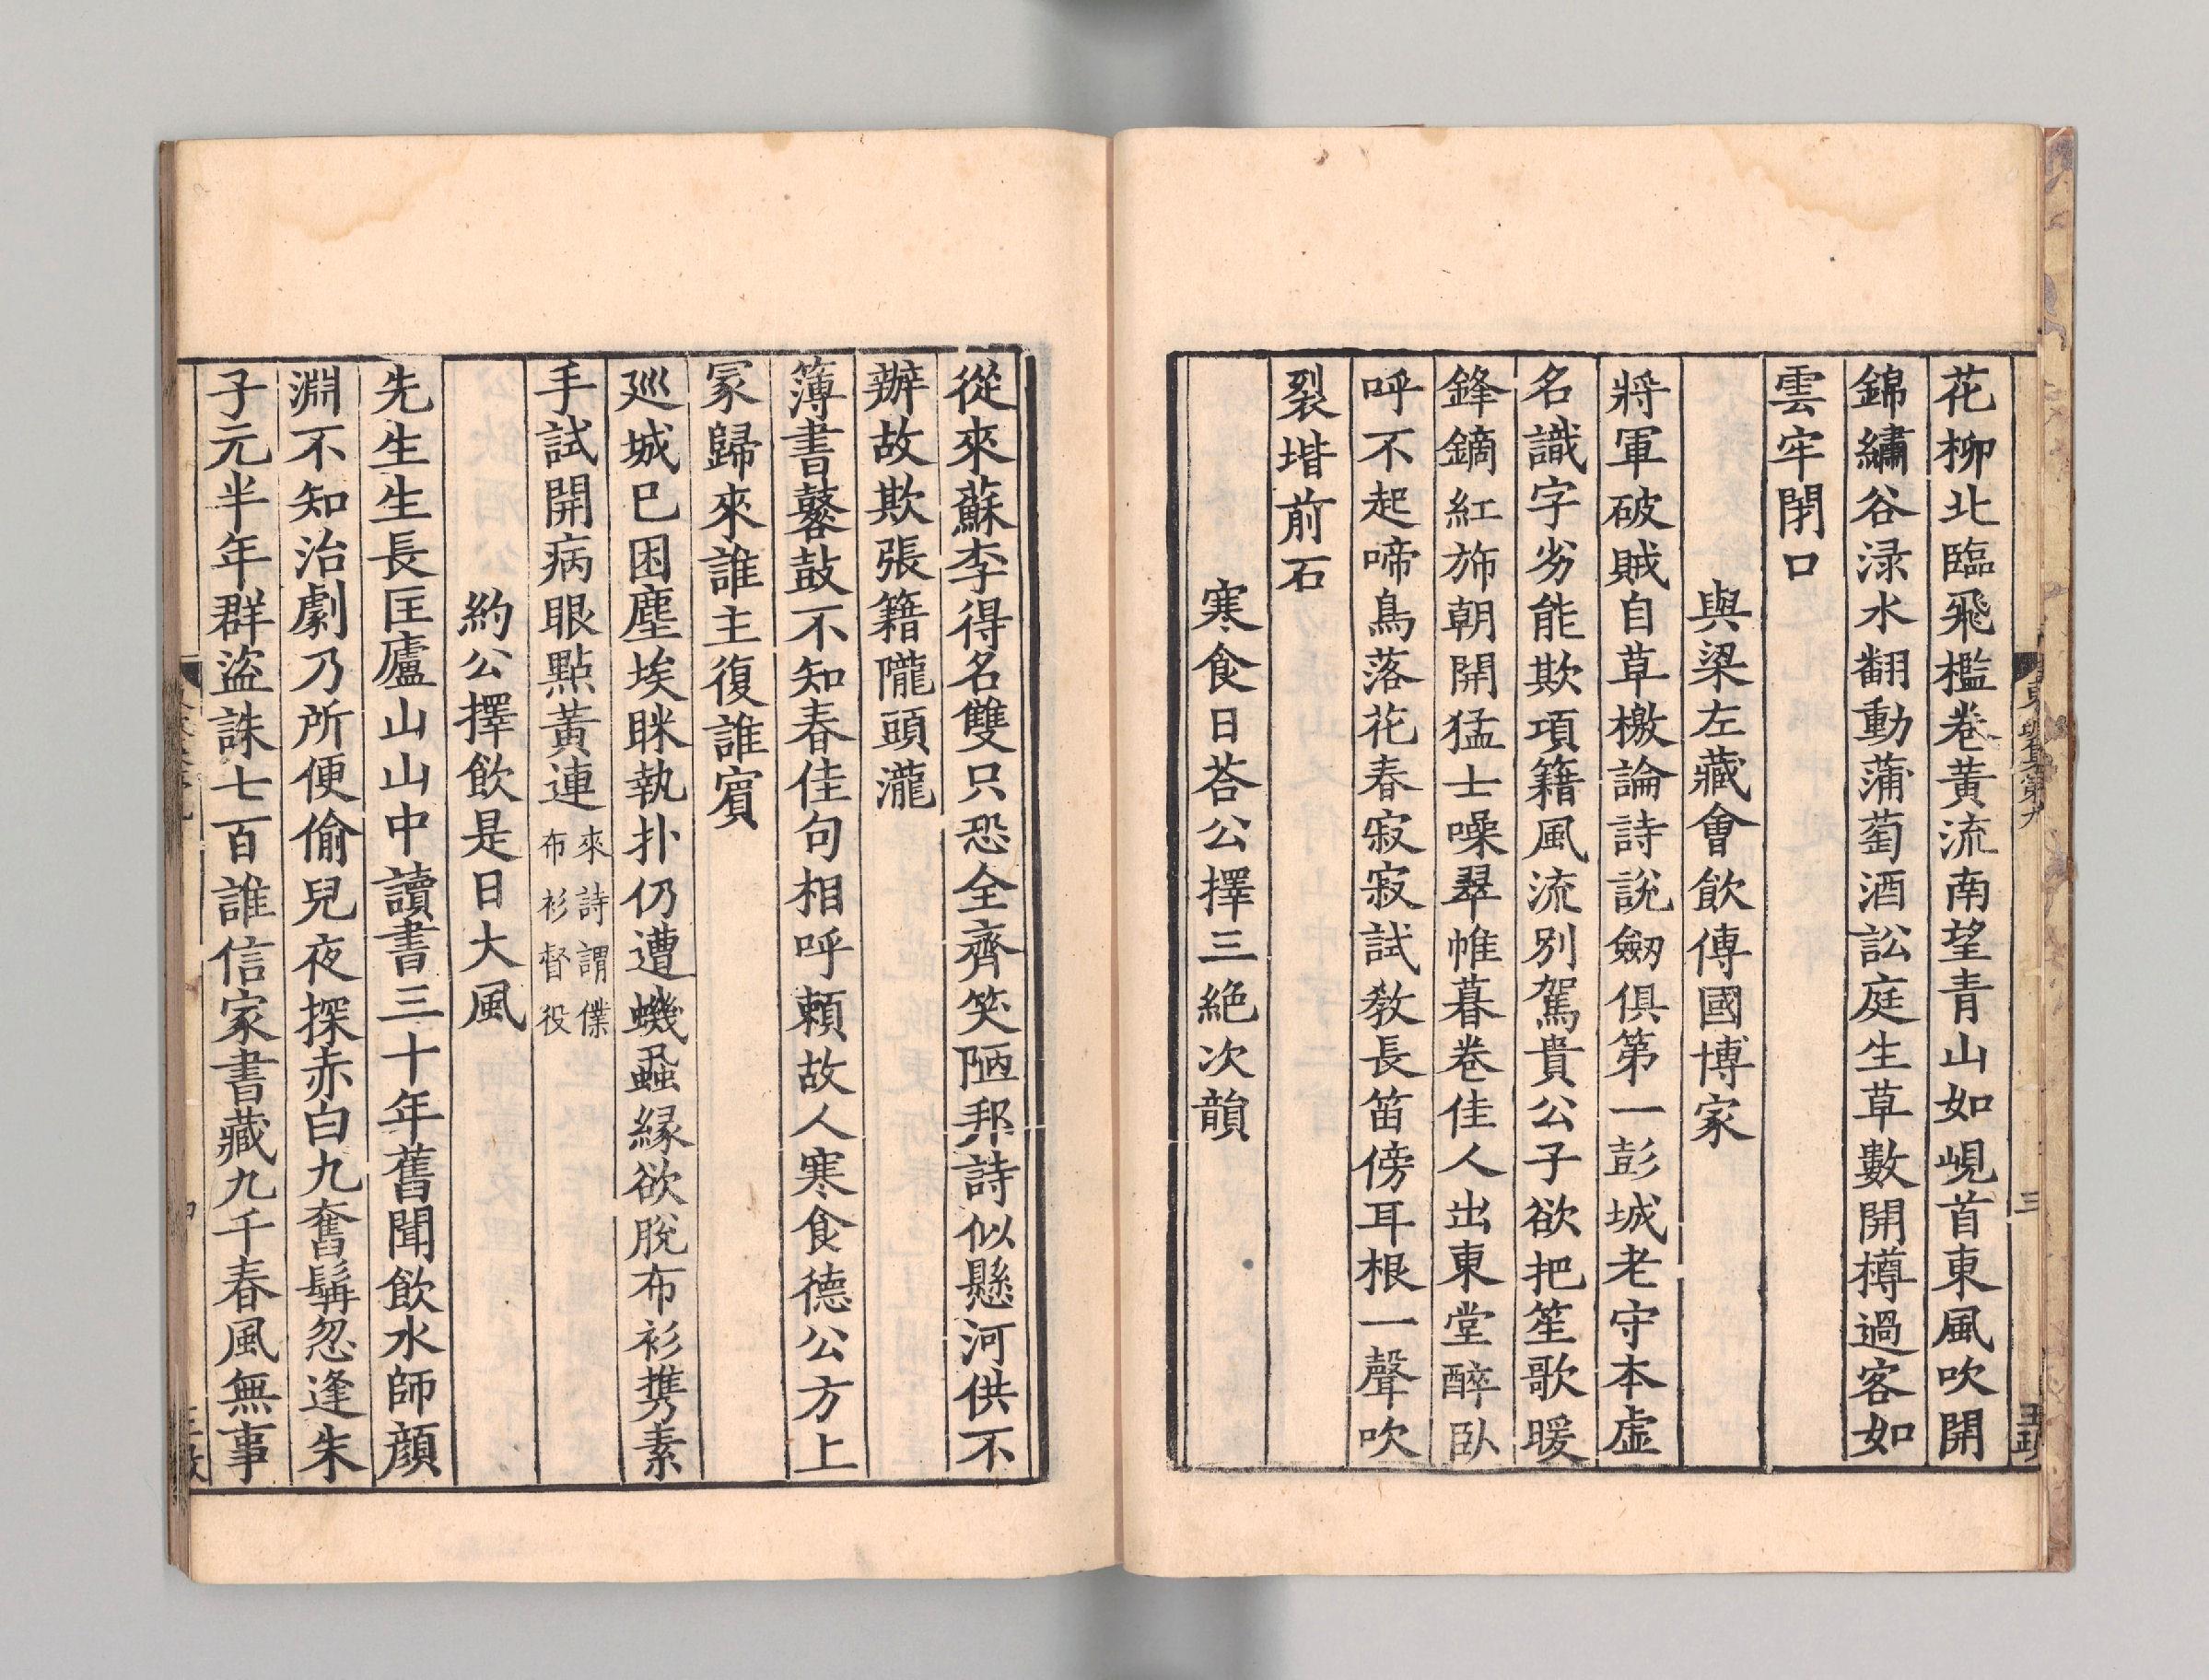 花柳北臨飛檻卷黃流南望青山如峴首東風吹開
錦繡谷渌水翻動蒲萄酒訟庭生草數開樽過客如
雲牢閉口
與梁左藏會飲傅國博家
將軍破賊自草檄論詩說劒俱第一彭城老守本虛
名識字劣能欺項籍風流別駕貴公子欲把笙歌暖
鋒鏑紅斾朝開猛士噪翠帷暮卷佳人出東堂醉臥
呼不起啼鳥落花春寂寂試教長笛傍耳根一聲吹
裂堦前石
寒食日荅公擇三絶次韻
從來蘇李得名雙只恐全齊笑陋邦詩似懸河供不
辦故欺張籍隴頭瀧
簿書鼛鼓不知春佳句相呼賴故人寒食德公方上
冢歸來誰主復誰賓
巡城已困塵埃眯執扑仍遭蟣蝨緣欲脫布衫携素
手試開病眼點黃連
來詩謂僕
布衫督役
約公擇飲是日大風
先生生長匡廬山山中讀書三十年舊聞飲水師顏
淵不知治劇乃所便偷兒夜探赤白九奮髯忽逢朱
子元半年群盜誅七百誰信家書藏九千春風無事